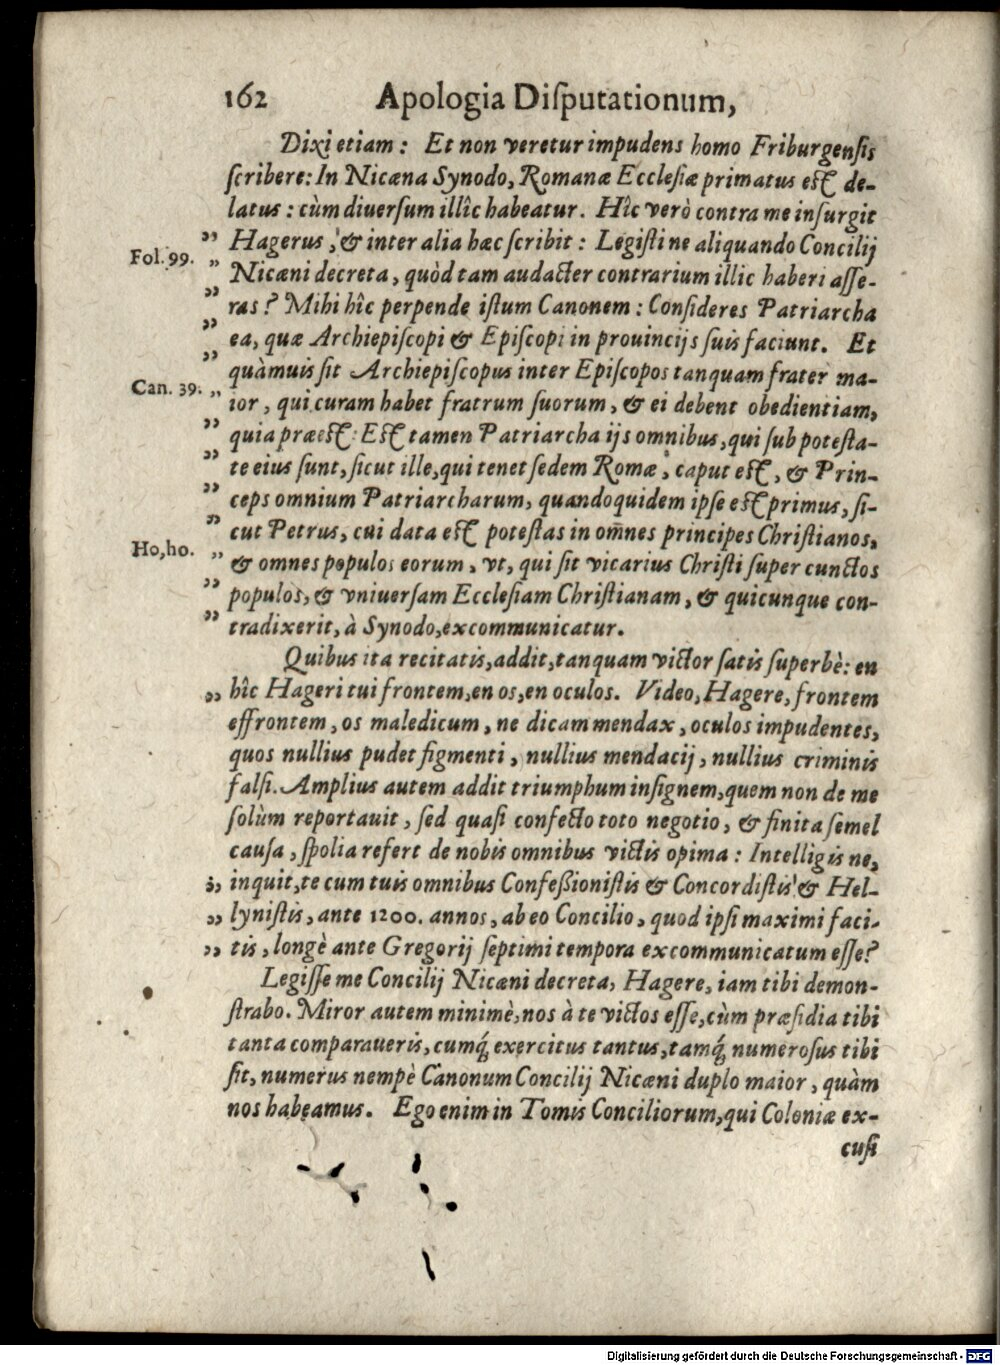 162 Apologia Diſputationum,
Dixi etiam: Et non veretur impudens homo Friburgenſis
ſcribere: In Nicæna Synodo, Romanæ Eccleſiæ primatus eſt de-
latus: cùm diuerſum illîc habeatur. Hîc verò contra me inſurgit
„ Hagerus, & inter alia hæc ſcribit: Legiſtine aliquando Concilij
Fol. 99. „ Nicæni decreta, quòd tam audacter contrarium illic haberi aſſe-
„ ras? Mihi hîc perpende iſtum Canonem: Conſideres Patriarcha
„ ea, quæ Archiepiſcopi & Epiſcopi in prouincijs ſuis faciunt. Et
„ quàmuis ſit Archiepiſcopus inter Epiſcopos tanquam frater ma-
Can. 39. „ ior, qui curam habet fratrum ſuorum, & ei debent obedientiam,
„ quia præeſt: Eſt tamen Patriarcha ijs omnibus, qui ſub poteſta-
„ te eius ſunt, ſicut ille, qui tenet ſedem Romæ, caput eſt, & Prin-
„ ceps omnium Patriarcharum, quandoquidem ipſe eſt primus, ſi-
„ cut Petrus, cui data eſt poteſtas in om̃nes principes Chriſtianos,
Ho, ho. „ & omnes populos eorum, vt, qui ſit vicarius Chriſti ſuper cunctos
„ populos, & vniuerſam Eccleſiam Chriſtianam, & quicunque con-
„ tradixerit, à Synodo, excommunicatur.
Quibus ita recitatis, addit, tanquam victor ſatis ſuperbè: en
„ hîc Hageri tui frontem, en os, en oculos. Video, Hagere, frontem
effrontem, os maledicum, ne dicam mendax, oculos impudentes,
quos nullius pudet figmenti, nullius mendacij, nullius criminis
falſi. Amplius autem addit triumphum inſignem, quem non de me
ſolùm reportauit, ſed quaſi confecto toto negotio, & finita ſemel
cauſa, ſpolia refert de nobis omnibus victis opima: Intelligis ne,
„ inquit, te cum tuis omnibus Confeßioniſtis & Concordiſtis & Hel-
„ lyniſtis, ante 1200. annos, ab eo Concilio, quod ipſi maximi faci-
„ tis, longè ante Gregorij ſeptimi tempora excommunicatum eſſe?
Legiſſe me Concilij Nicæni decreta, Hagere, iam tibi demon-
ſtrabo. Miror autem minimè, nos à te victos eſſe, cùm præſidia tibi
tanta comparaueris, cumq́; exercitus tantus, tamq́; numeroſus tibi
ſit, numerus nempè Canonum Concilij Nicæni duplo maior, quàm
nos habeamus. Ego enim in Tomis Conciliorum, qui Coloniæ ex-
cuſi
Digitalisierung gefördert durch die Deutsche Forschungsgemeinschaft - DFG